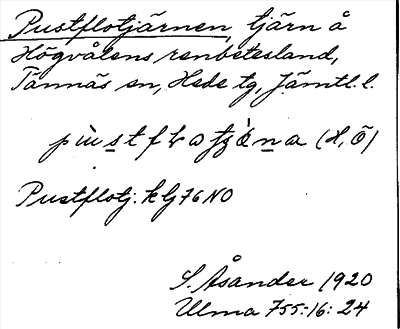 Pustflotjärnen, tjärn å
Högvålens renbetesland,
Tännäs sn, Hede tg, Jämtl. l.
Pustflotj. kbj 76 NO
S. Åsander 1920
Ulma 755:16: 24